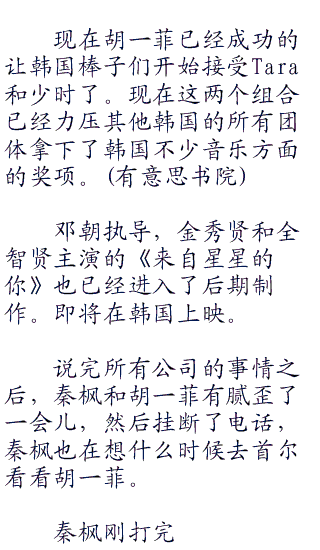 现在胡一菲已经成功的
让韩国棒子们开始接受Tara
和少时了。现在这两个组合
已经力压其他韩国的所有团
体拿下了韩国不少音乐方面
的奖项。(有意思书院)
邓朝执导，金秀贤和全
智贤主演的《来自星星的
你》也已经进入了后期制
作。即将在韩国上映。
说完所有公司的事情之
后，秦枫和胡一菲有腻歪了
一会儿，然后挂断了电话，
秦枫也在想什么时候去首尔
看看胡一菲。
秦枫刚打完